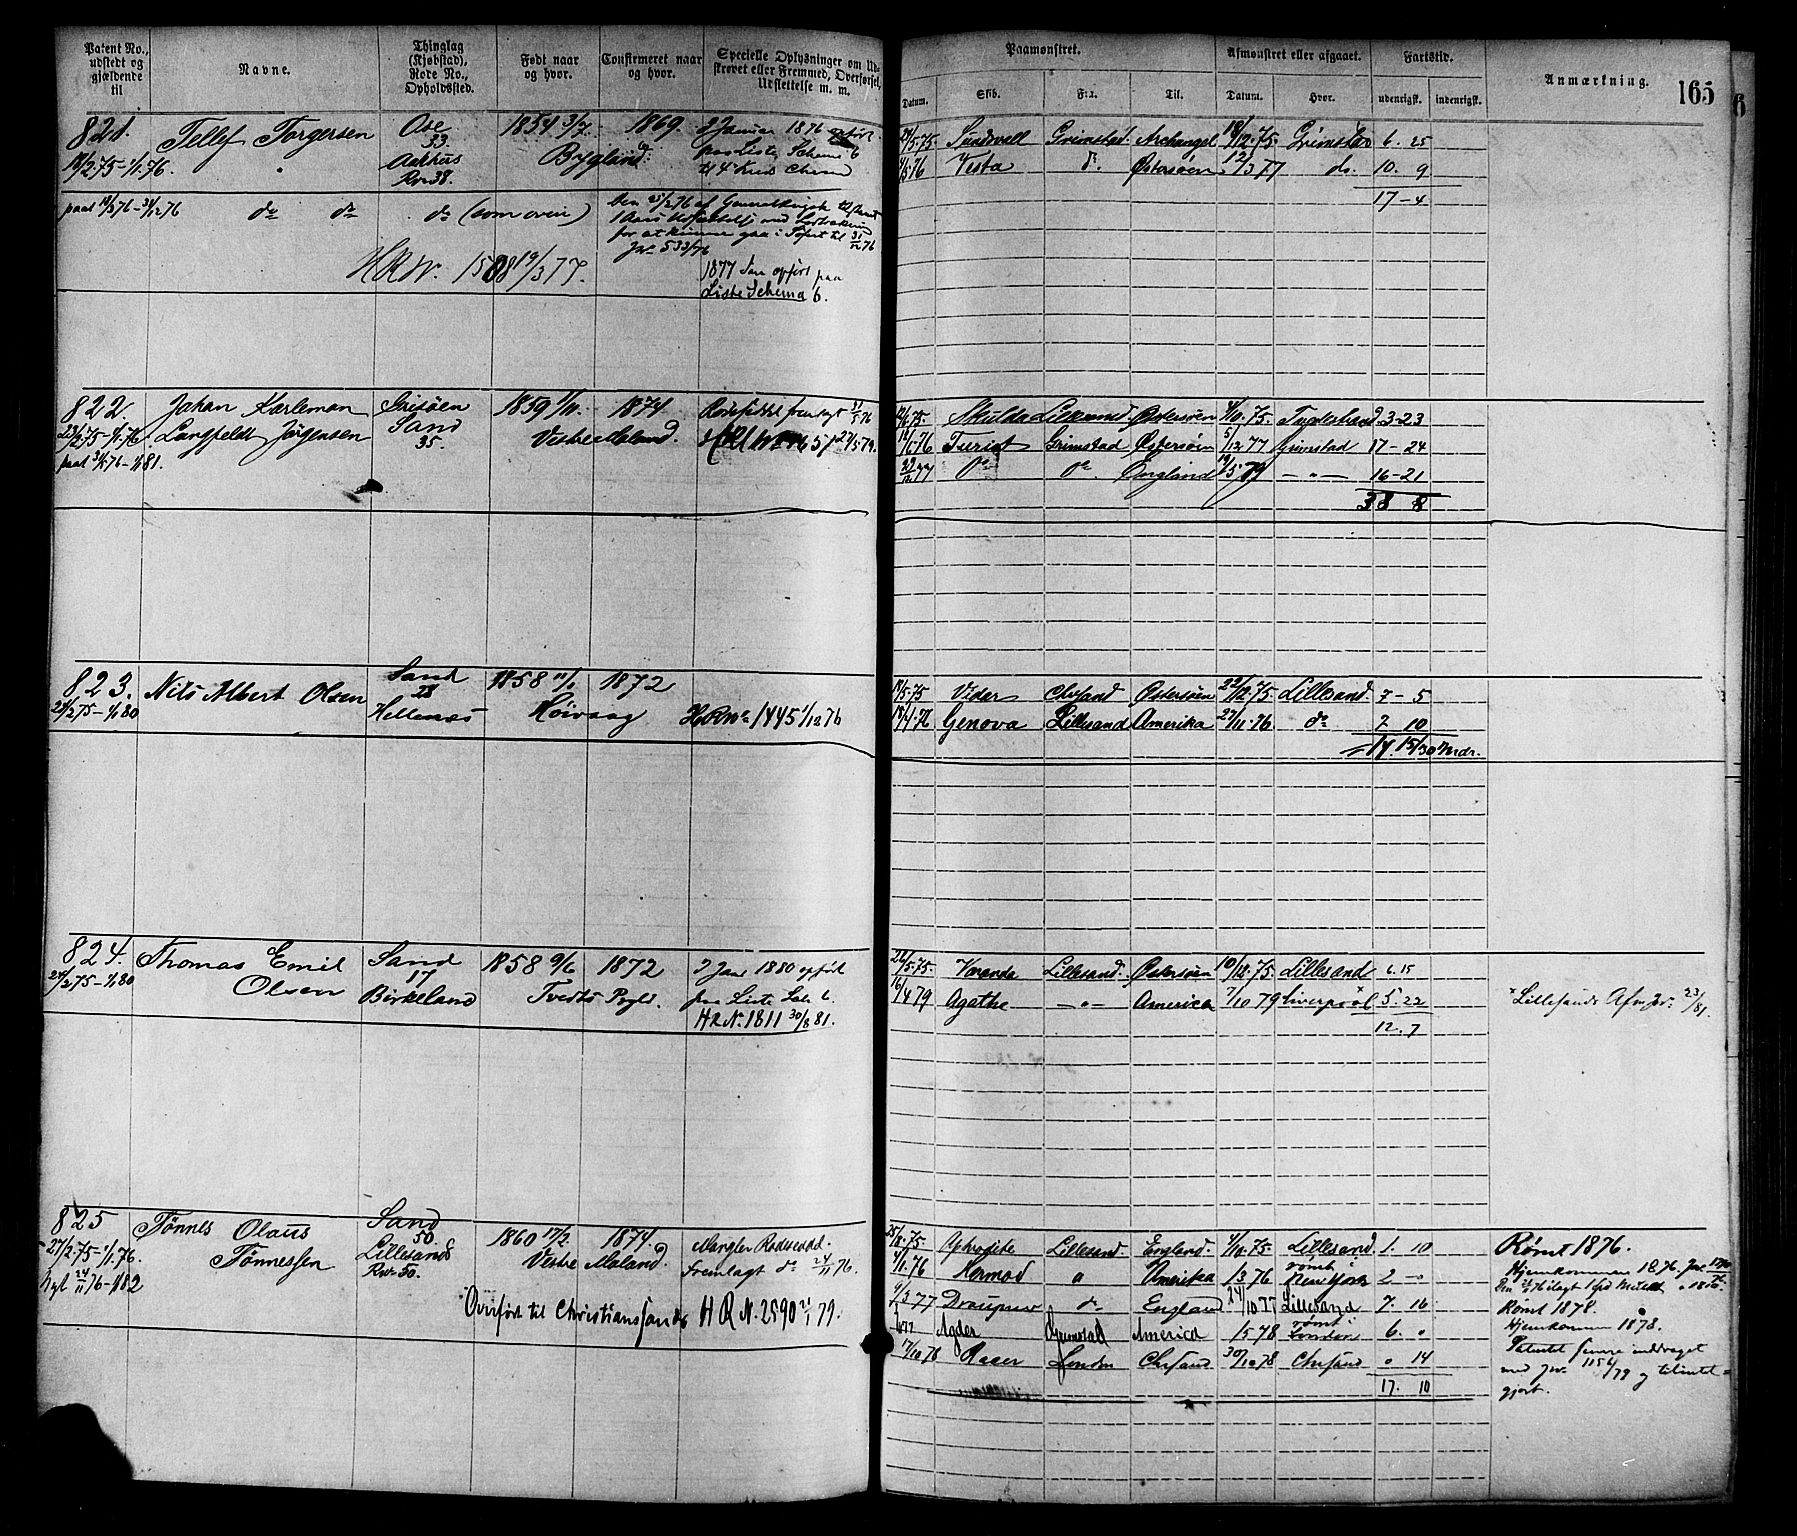 Patent No., udstedt og gjældende til
Navne.
Thinglag (Kjøbstad), Rode No., Opholdssted.
Født naar og hvor.
Confirmeret naar og hvor.
Specielle Oplysninger om Udskrevet eller Fremmed, Overførsel, Udslettelse m. m.
Paamønstret.
Datum.
Skib.
Fra.
Til.
Afmønstret eller afgaaet.
Datum.
Hvor.
Fartstid.
udenrigsk.
indenrigsk.
Anmærkning.
165
821.
Tellef Torgersen
Ose
33
Aarhus
Rno 38.
1854 3/7.
Bygland
1869.
do
Januar 1876 opført
paa Liste Schema 6
24/5.75. Sundsvall Grimstad Archangel 18/12.75. Grimstad 6. 25
Vesta do Østersøen 12/3 77 do. 10. 9
17-4
do do do (som oven)
for at kunne gaa i
Jno 533/76
HRNo. 1508 19/3 77.
1877 opført paa
Liste Schema 6.
822.
23/2.75-1/1.76
Johan Karleman
Langfeldt Jørgensen
Sand
35.
1859 1/11.
Vestre Moland.
1874
Skulda Lillesand Østersøen 4/10.75. Tvedestrand 3-23
Grimstad Østersøen 5/12 77 Grimstad 17-24
29/12 77 Do Do. England 19/5.79 -"- 16-21
38 8
823.
24/2.75-1/1.80
Nils Albert Olsen
Sand
28
Hellenæs
1858 11/1
Høivaag
1872
HRNo 1445 1/12 76
19/5.75 Vidar Chrsand Østersøen 22/12.75. Lillesand 7-5
Genova Lillesand Amerika 27/11.76 do 7 10
14. 15/30 Mdr.
824.
24/2.75-1/1.80
Thomas Emil
Olsen
Sand
17
Birkeland
1858 9/6
Tvedts Pgld.
1872
I Jan 1880 opført
paa Liste Sch 6.
HRNo. 1811 30/8 81.
26/5.75. Varanda Lillesand. Østersøen 10/12.75. Lillesand 6.15
16/4 79 Agathe -"- America 7/10 79 Liverpool 5. 22
12. 7
x Lillesands Afm jr. 23/81.
825
27/2.75-1/1.76.
Nyt 24/11 76-1/1 82
Tønnes Olaus
Tønnessen
Sand
50.
Lillesand
Rno 50.
1860 17/2
Vestre Moland.
1874.
Mangler Rodeseddel.
Fremlagt do 24/11 76.
Overført til Christianssands HRN. 2590 79.
25/8.75 Aphrodite Lillesand. England. 4/10.75. Lillesand. 1. 10
4/1.76 Hermod " Amerika 1 3 76 rømt i New York 2 -"
77 Draupner do England 24/10 77 Lillesand 7. 16
Agder Grimstad America 1 5 78 rømt i London 6. "
17/10 78 London Chrsand 30/10.78 Chrsand " 14
17. 10
Rømt 1876.
Hjemkommen 1876
Rømt 1878.
Hjemkommen 1878.
Patentet inddraget
med jnr. 1156/79 og tilintet-
gjort.